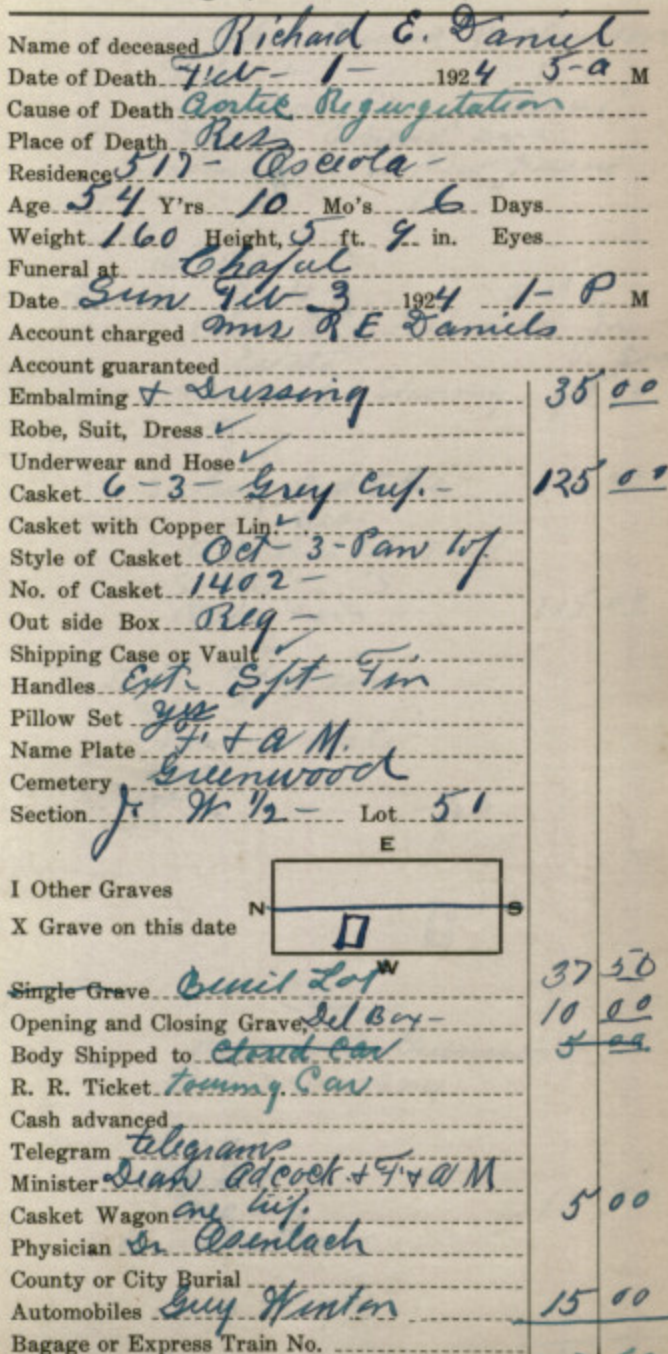 Name of deceased Richard E. Daniel
Date of Death Feb - 1 - 1924 5-a M
Cause of Death Aortic Regurgitation
Place of Death Res
Residence 517 - Osceola -
Age 54 Y'rs 10 Mo's 6 Days
Weight 160 Height, 5 ft. 9 in. Eyes
Funeral at Chapel
Date Sun Feb 3 1924 1 - P M
Account charged Mrs R E Daniels
Account guaranteed
Embalming + Dressing 35 00
Robe, Suit, Dress ✓
Underwear and Hose ✓
Casket 6-3- Grey 125 00
Casket with Copper Lin ✓
Style of Casket Oct 3-Pan
No. of Casket 1402 -
Out side Box Reg -
Shipping Case or Vault ✓
Handles Ext-
Pillow Set yes
Name Plate F. + A M.
Cemetery Greenwood
Section W 1/2 - Lot 51
E
I Other Graves
N S
X Grave on this date
W
Single Grave Lot 37 50
Opening and Closing Grave, Del Box - 10 00
Body Shipped to Closed Car 5 00
R. R. Ticket Touring Car
Cash advanced
Telegram telegrams
Minister Dean Adcock + F + A M
Casket Wagon 5 00
Physician Dr
County or City Burial
Automobiles Guy Winton 15 00
Bagage or Express Train No.